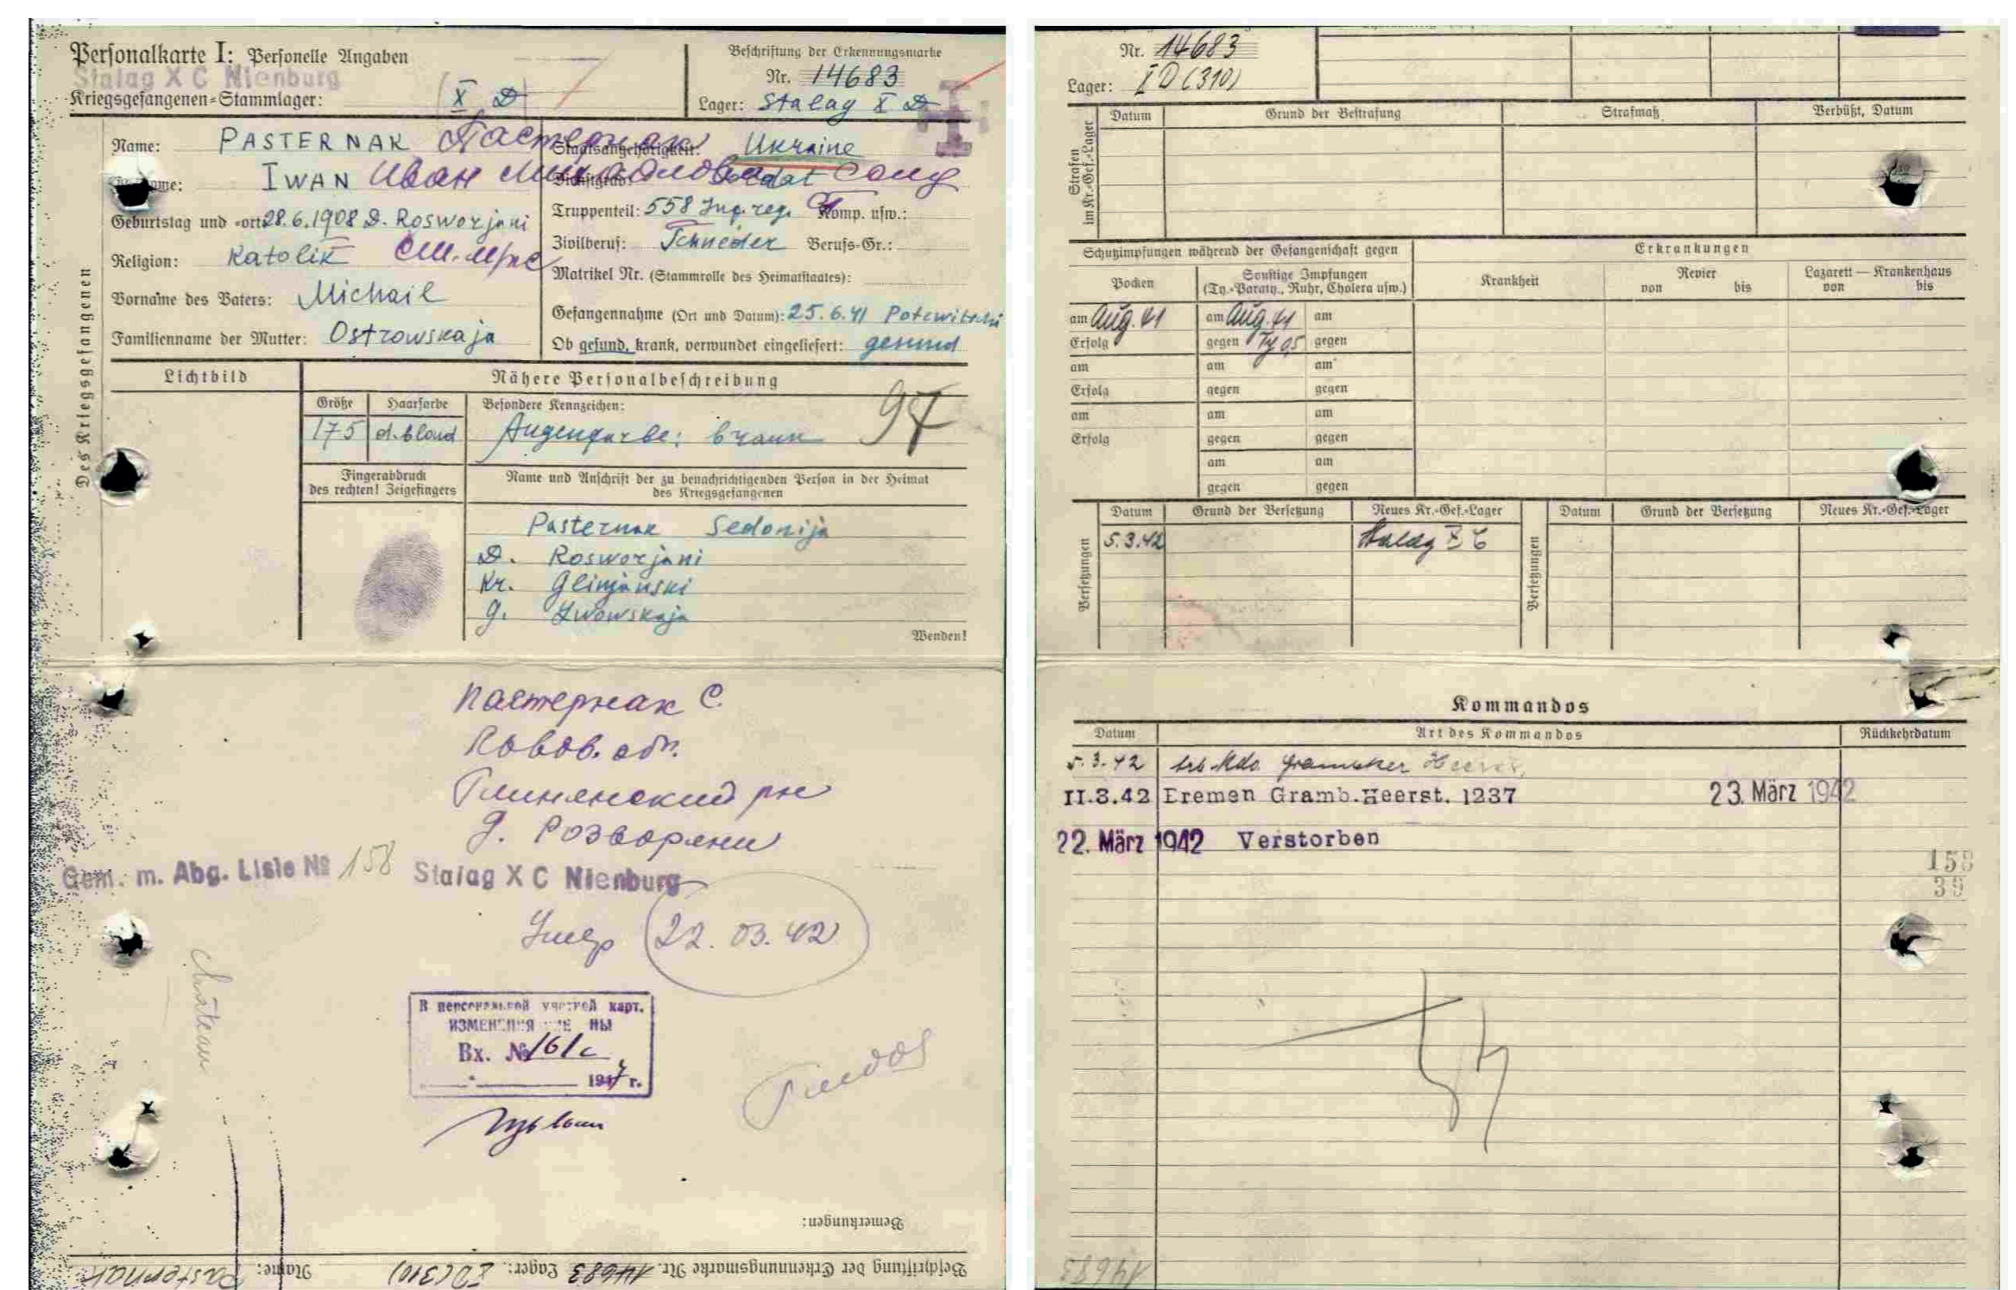 Personalkarte I: Personelle Angaben
Stalag X C Nienburg
Kriegsgefangenen-Stammlager: (X D)
Beschriftung der Erkennungsmarke
Nr. 14683
Lager: Stalag X D
Des Kriegsgefangenen
Name: PASTERNAK Пастернак
IWAN Иван Михайлович
Geburtstag und -ort: 28.6.1908 D. Rosworjani
Religion: Katolik
Vorname des Vaters: Michail
Familienname der Mutter: Ostrowskaja
Staatsangehörigkeit: Ukraine
Dienstgrad: Soldat Солд
Truppenteil: 558 Ing. reg. Komp. usw.:
Zivilberuf: Schneider Berufs-Gr.:
Matrikel Nr. (Stammrolle des Heimatstaates):
Gefangennahme (Ort und Datum): 25.6.41
Ob gesund, krank, verwundet eingeliefert: gesund
Lichtbild
Nähere Personalbeschreibung
Größe Haarfarbe Besondere Kennzeichen:
175 d. blond Augenfarbe: braun
97
Fingerabdruck
des rechten! Zeigefingers
Name und Anschrift der zu benachrichtigenden Person in der Heimat
des Kriegsgefangenen
Pasternak Sedonija
D. Rosworjani
Kr. Glinjanski
g. Lwowskaja
Wenden!
Пастернак С.
Львов. обл.
Глинянский рн
д. Розворяни
Gem. m. Abg. Liste № 158 Stalag X C Nienburg
Умер 22.03.42
château
В персональной учетной карт.
ИЗМЕНЕНИЯ УЧТЕНЫ
Вх. № 161с
1947 г.
Bemerkungen:
Beschriftung der Erkennungsmarke Nr. 14683 Lager: XD (310) Name: Pasternak
Nr. 14683
Lager: XD (310)
Strafen im Kr.-Gef.-Lager
Datum Grund der Bestrafung Strafmaß Verbüßt, Datum
Schutzimpfungen während der Gefangenschaft gegen
Erkrankungen
Pocken
Sonstige Impfungen
(Ty.-Paraty., Ruhr, Cholera usw.)
Krankheit
Revier
von bis
Lazarett — Krankenhaus
von bis
am Aug. 41 am Aug. 41 am
Erfolg gegen Ty gegen
am am am
Erfolg gegen gegen
am am am
Erfolg gegen gegen
am am
gegen gegen
Versetzungen
Datum Grund der Versetzung Neues Kr.-Gef.-Lager
5.3.42 Stalag X C
Versetzungen
Datum Grund der Versetzung Neues Kr.-Gef.-Lager
Kommandos
Datum Art des Kommandos Rückkehrdatum
5.3.42
II.3.42 Bremen Gramb.Heerst. 1237 23. März 1942
22. März 1942 Verstorben
158
39
14683